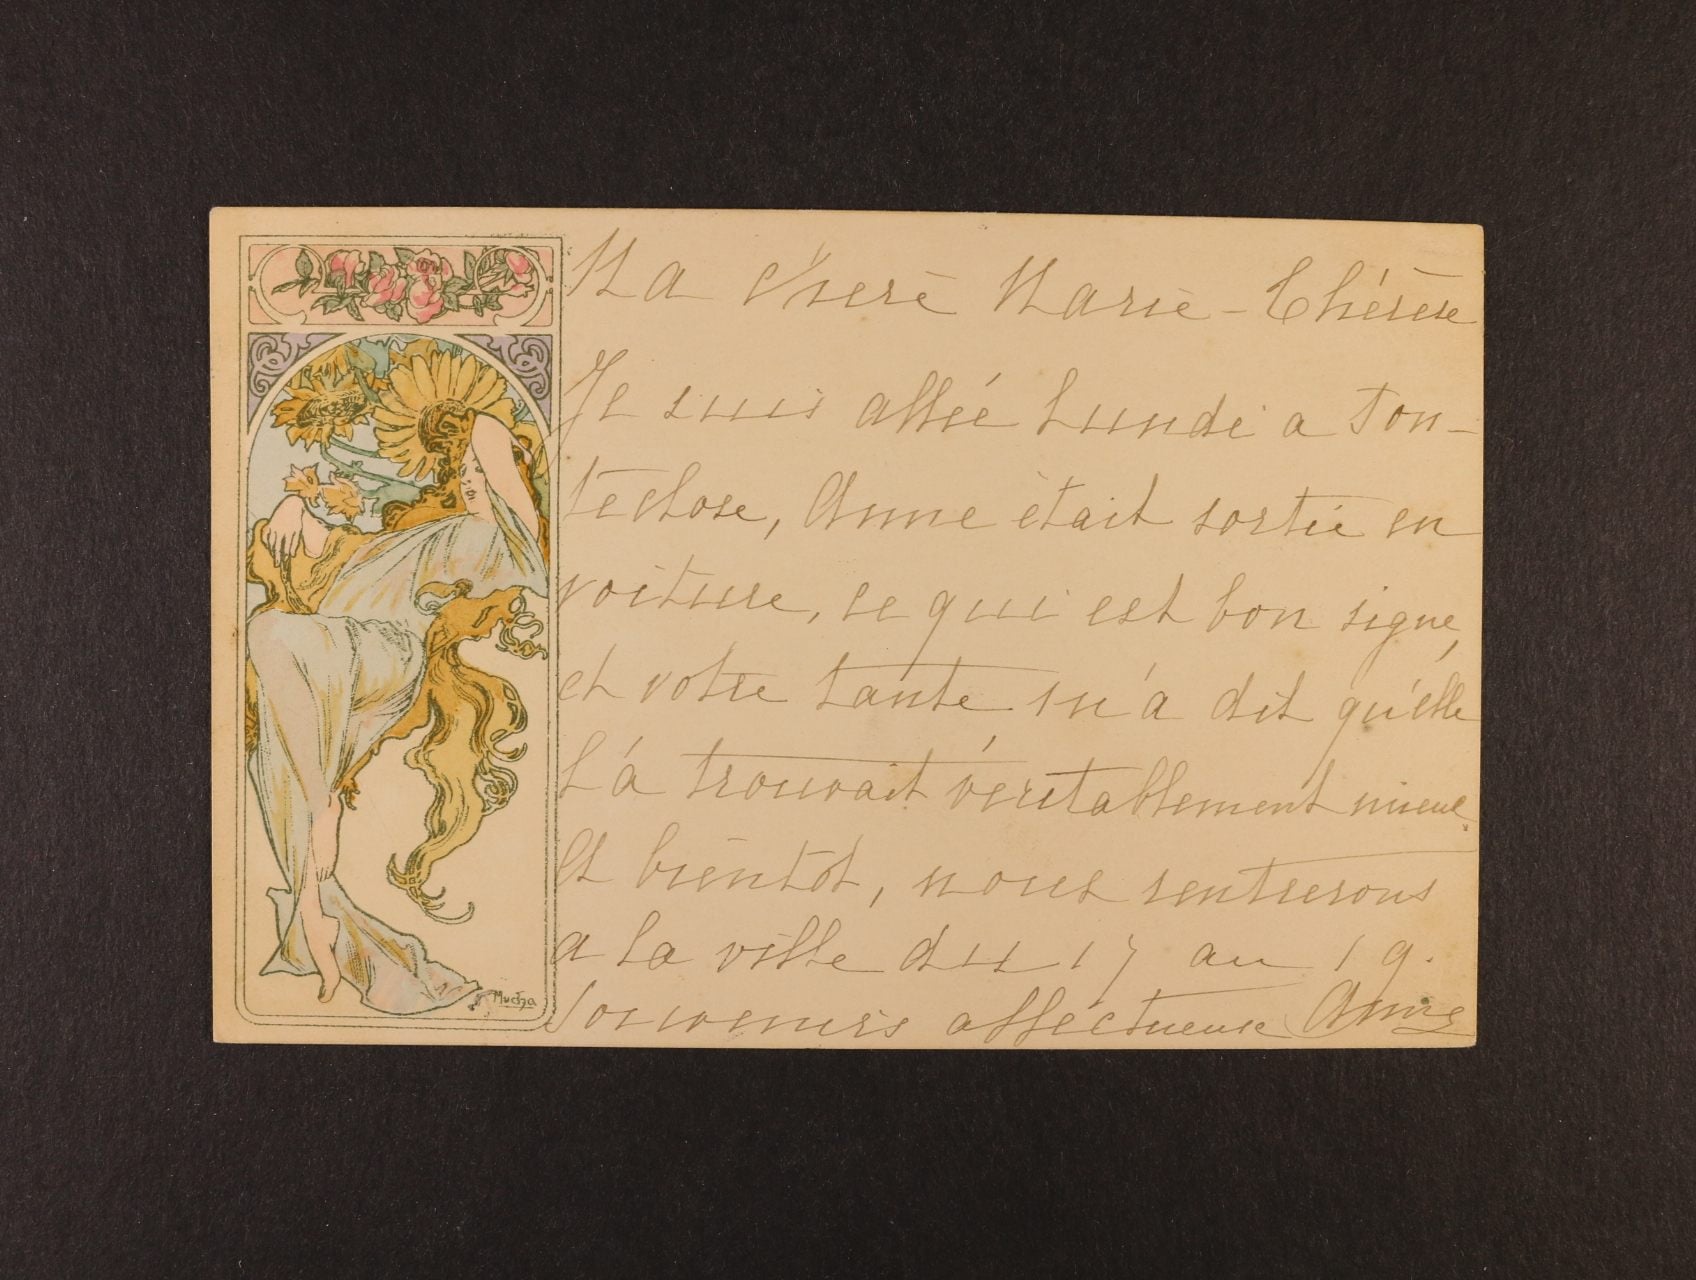 Ma chère Marie-Thérèse
Je suis allée Lundi a Fon-
teclose, Anne était sortie en
voiture, ce qui est bon signe,
et votre tante m'a dit qu'elle
l'a trouvait véritablement mieux.
Et bientôt, nous rentrerons
a la ville du 17 au 19.
Souvenirs affectueuse Anne
Mucha